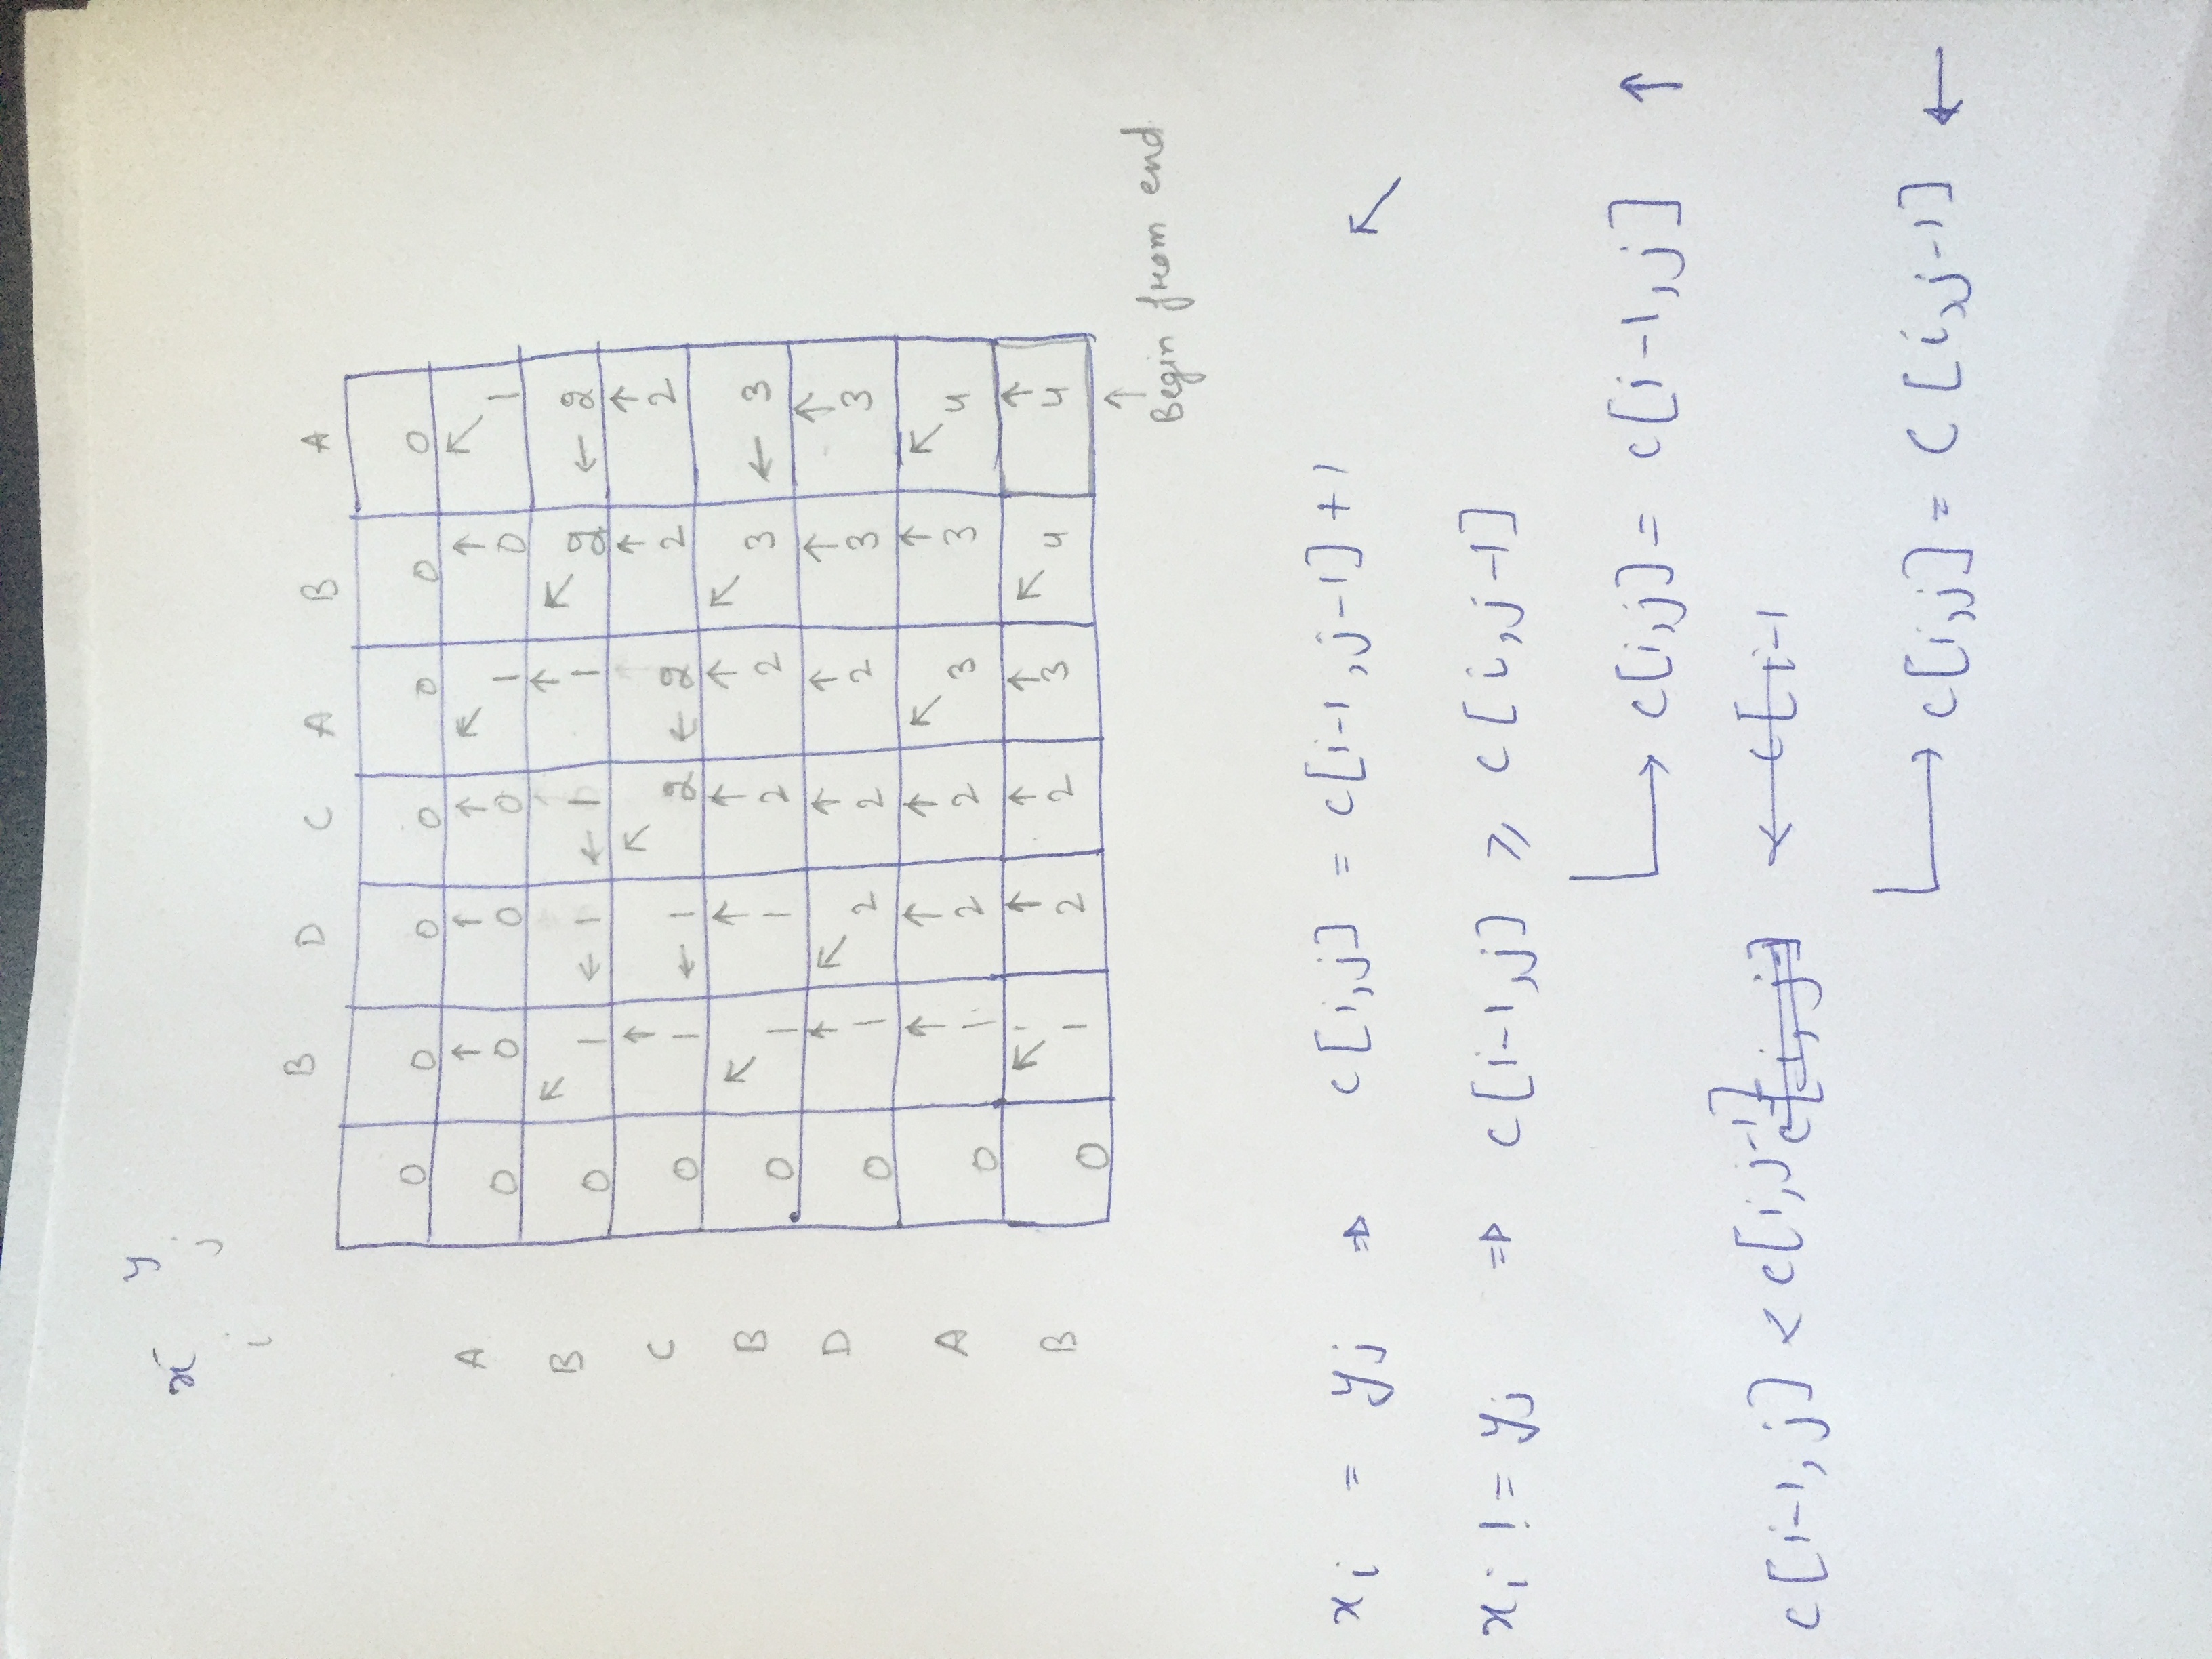 x y
i j
B D C A B A
0 0 0 0 0 0 0
A ↑ ↑ ↑ ↖ ↑ ↖
0 0 0 0 1 0 1
B ↖ ↑ ↖
0 1 ← 1 ← 1 1 2 ← 2
C ↑ ↖ ↑ ↑
0 1 ← 1 2 ← 2 2 2
B ↖ ↑ ↑ ↑ ↖
0 1 1 2 2 3 ← 3
D ↑ ↖ ↑ ↑ ↑ ↑
0 1 2 2 2 3 3
A ↑ ↑ ↑ ↖ ↑ ↖
0 1 2 2 3 3 4
B ↖ ↑ ↑ ↑ ↖ ↑
0 1 2 2 3 4 4
↑
Begin from end
xi = yj ⇒ c[i,j] = c[i-1,j-1]+1 ↖
xi != yj ⇒ c[i-1,j] ⩾ c[i,j-1]
→ c[i,j] = c[i-1,j] ↑
c[i-1,j] < c[i,j-1] c[i,j] < c[i-1
→ c[i,j] = c[i,j-1] ←